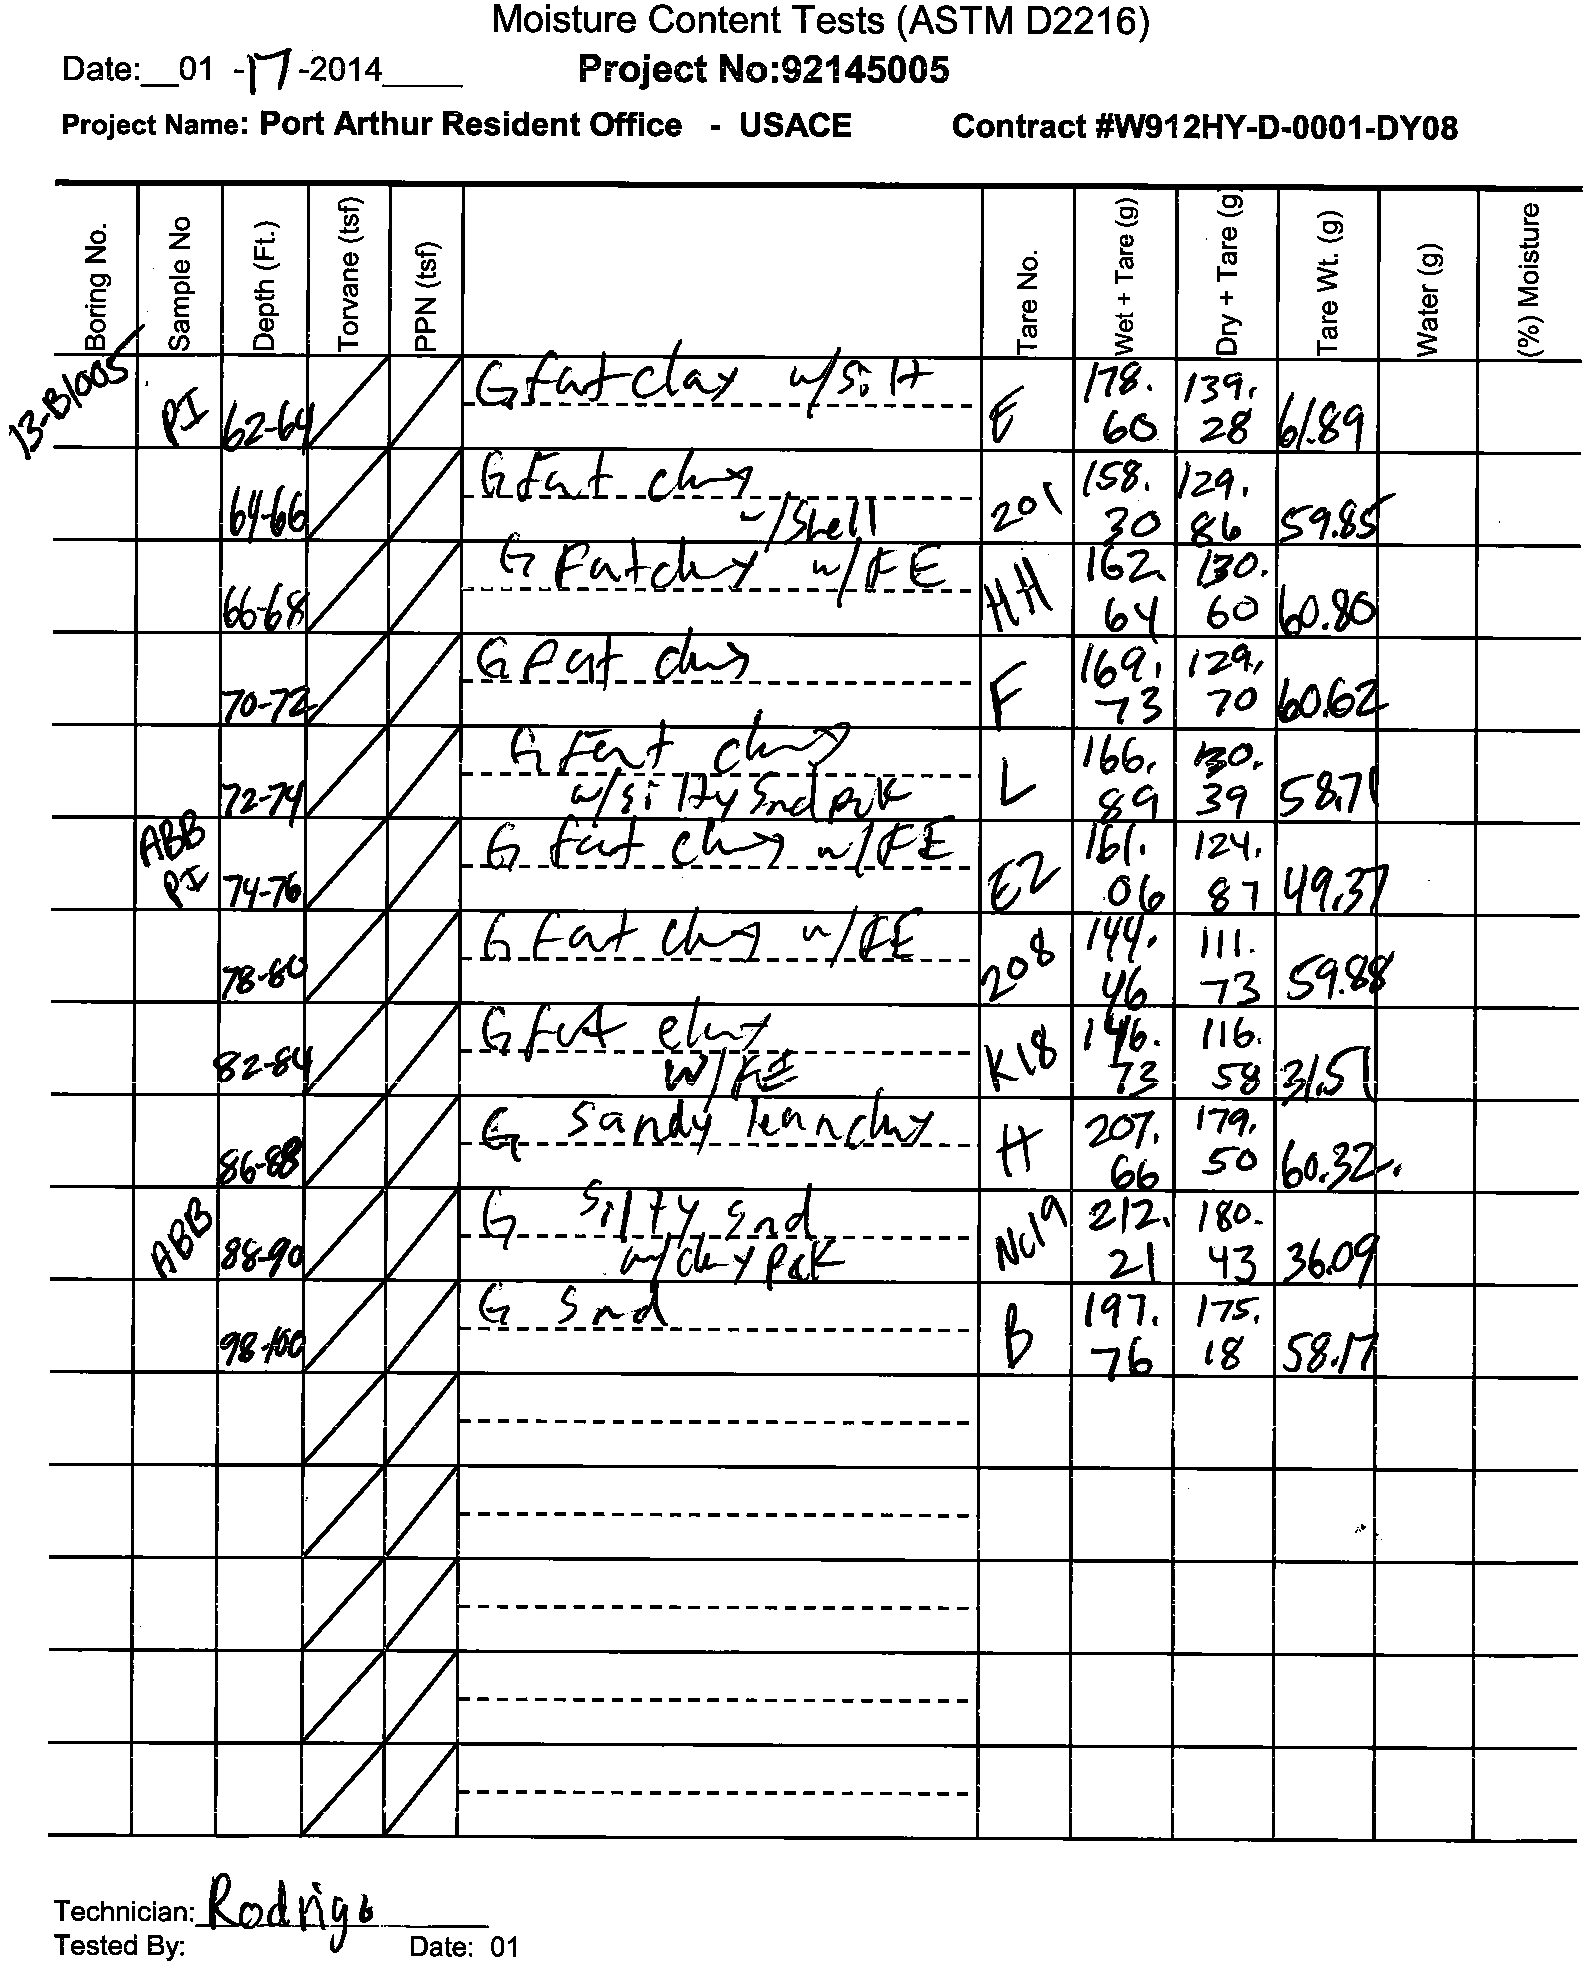 Moisture Content Tests (ASTM D2216)
Date:__01 -17-2014____ Project No:92145005
Project Name: Port Arthur Resident Office - USACE Contract #W912HY-D-0001-DY08
Boring No. Sample No Depth (Ft.) Torvane (tsf) PPN (tsf) Tare No. Wet + Tare (g) Dry + Tare (g) Tare Wt. (g) Water (g) (%) Moisture
13-B1005 PI 62-64 G fat clay w/silt E 178.60 139.28 61.89
64-66 G Fat clay w/shell 201 158.30 129.86 59.85
66-68 G Fat clay w/FE HH 162.64 130.60 60.80
70-72 G Fat clay F 169.73 129.70 60.62
72-74 G Fat clay w/silty Snd pck L 166.89 130.39 58.71
ABB PI 74-76 G fat clay w/FE E2 161.06 124.87 49.37
78-80 G Fat clay w/FE 208 144.46 111.73 59.88
82-84 G fat clay w/FE K18 146.73 116.58 31.51
86-88 G Sandy lean clay H 207.66 179.50 60.32
ABB 88-90 G Silty Snd w/clay pck Nc19 212.21 180.43 36.09
98-100 G Snd B 197.76 175.18 58.17
Technician: Rodrigo
Tested By: Date: 01